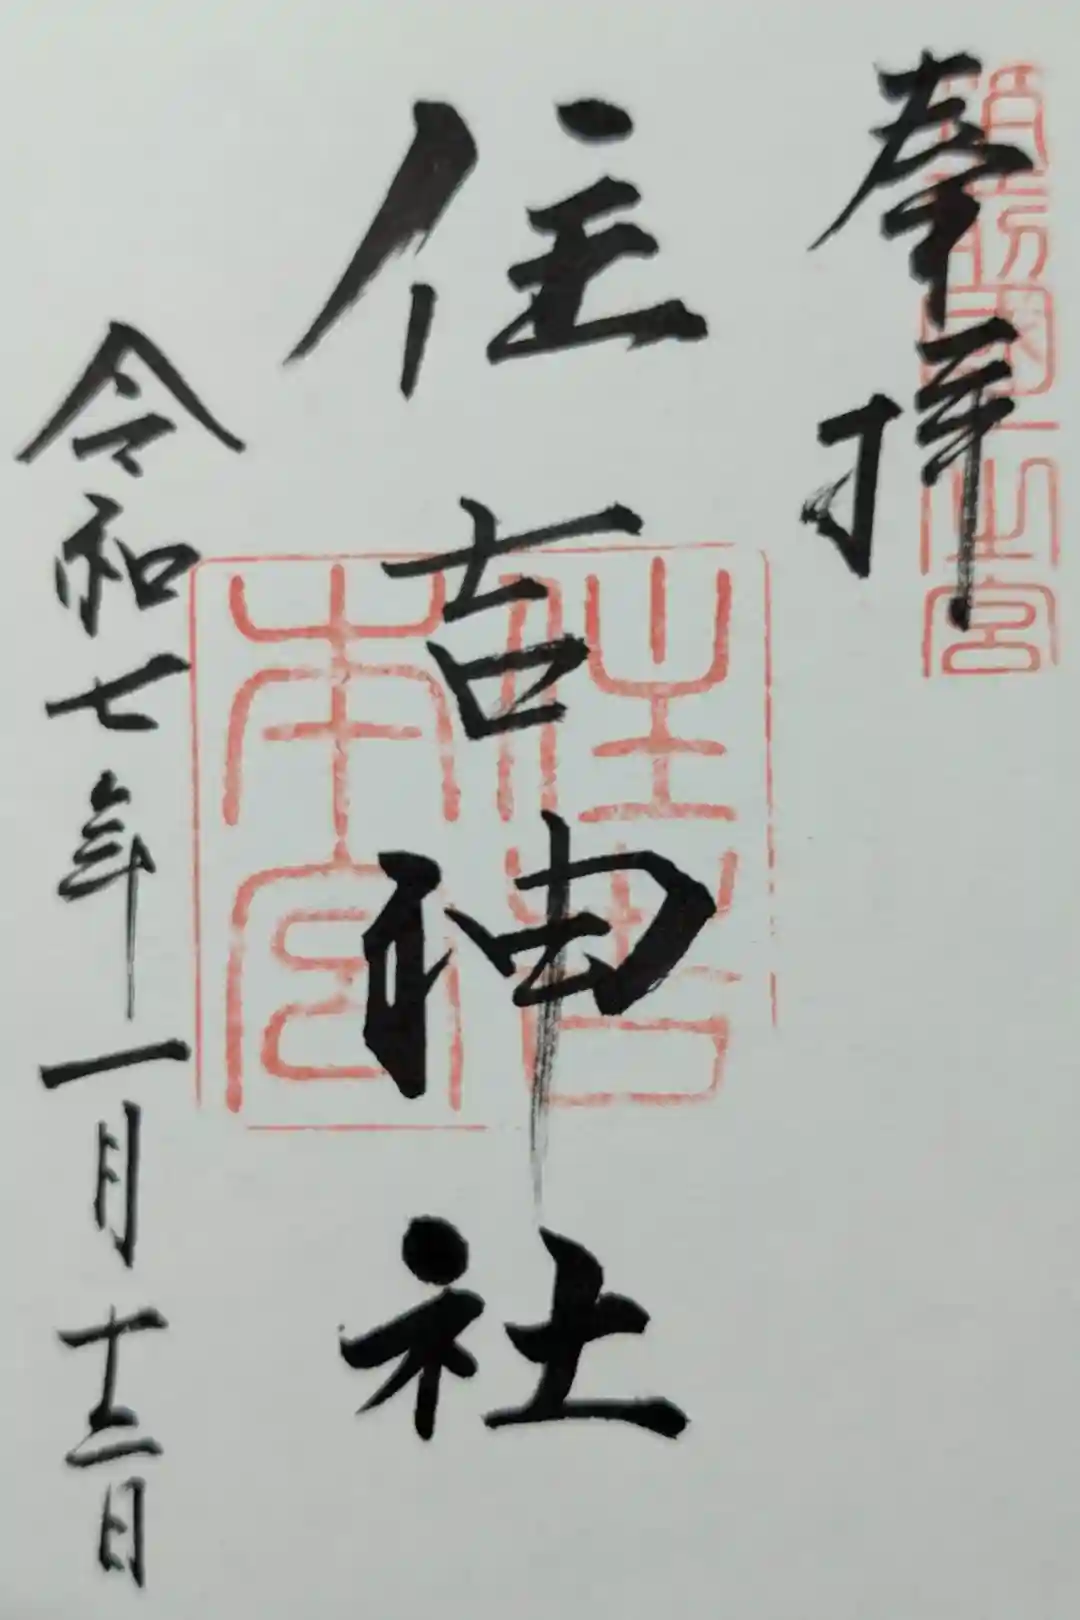 奉拝
筑前國一之宮
住吉神社
住吉本宮
令和七年一月十二日